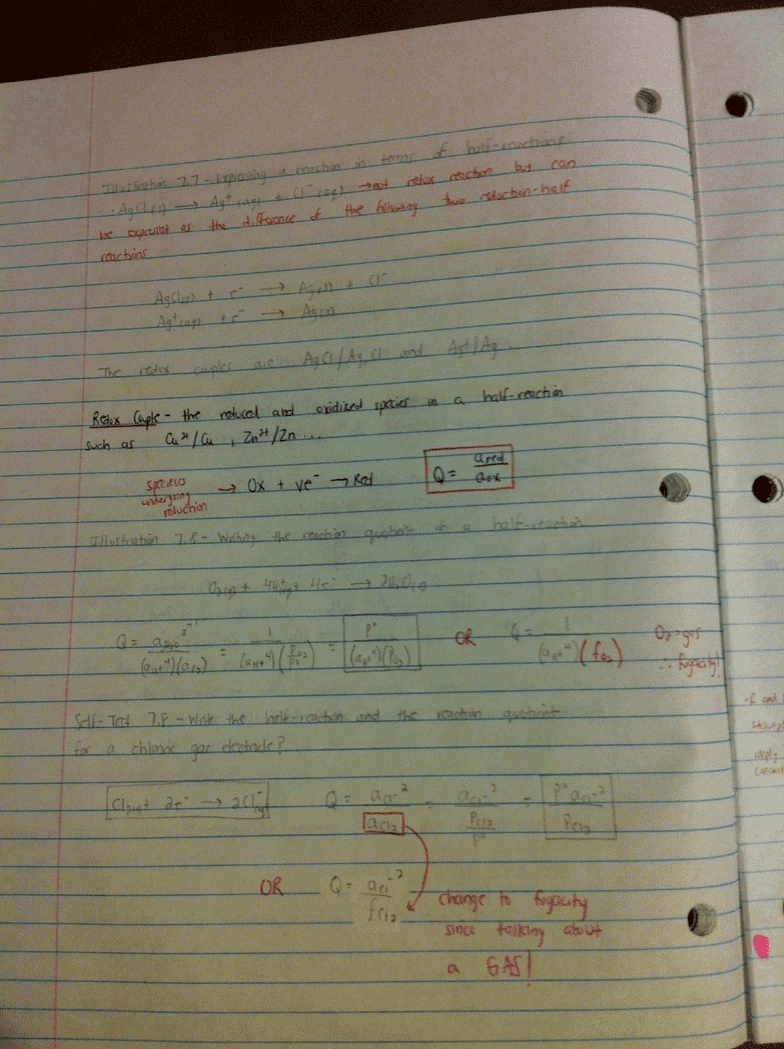 Illustration 7.7 - Expressing a reaction in terms of half-reactions
· AgCl(s) → Ag⁺(aq) + Cl⁻(aq) → not redox reaction but can
be expressed as the difference of the following two reduction-half
reactions
AgCl(s) + e⁻ → Ag(s) + Cl⁻
Ag⁺(aq) + e⁻ → Ag(s)
The redox couples are AgCl/Ag, Cl⁻ and Ag⁺/Ag.
Redox Couple - the reduced and oxidized species in a half-reaction
such as Cu²⁺/Cu, Zn²⁺/Zn...
species undergoing reduction → Ox + νe⁻ → Red Q = a red / a ox
Illustration 7.8 - Writing the reaction quotient of a half-reaction
O₂(g) + 4H⁺(aq) + 4e⁻ → 2H₂O(l)
Q = a H₂O² ¹ / (a H⁺⁴)(a O₂) = 1 / (a H⁺⁴)(P O₂ / P°) = P° / (a H⁺⁴)(P O₂) OR Q = 1 / (a H⁺⁴)(f O₂) O₂ → gas
∴ fugacity!
Self-Test 7.8 - Write the half-reaction and the reaction quotient
for a chlorine gas electrode?
Cl₂(g) + 2e⁻ → 2Cl⁻(aq) Q = a Cl⁻² / a Cl₂ = a Cl⁻² / (P Cl₂ / P°) = P° a Cl⁻² / P Cl₂
OR Q = a Cl⁻² / f Cl₂ change to fugacity
since talking about
a GAS!